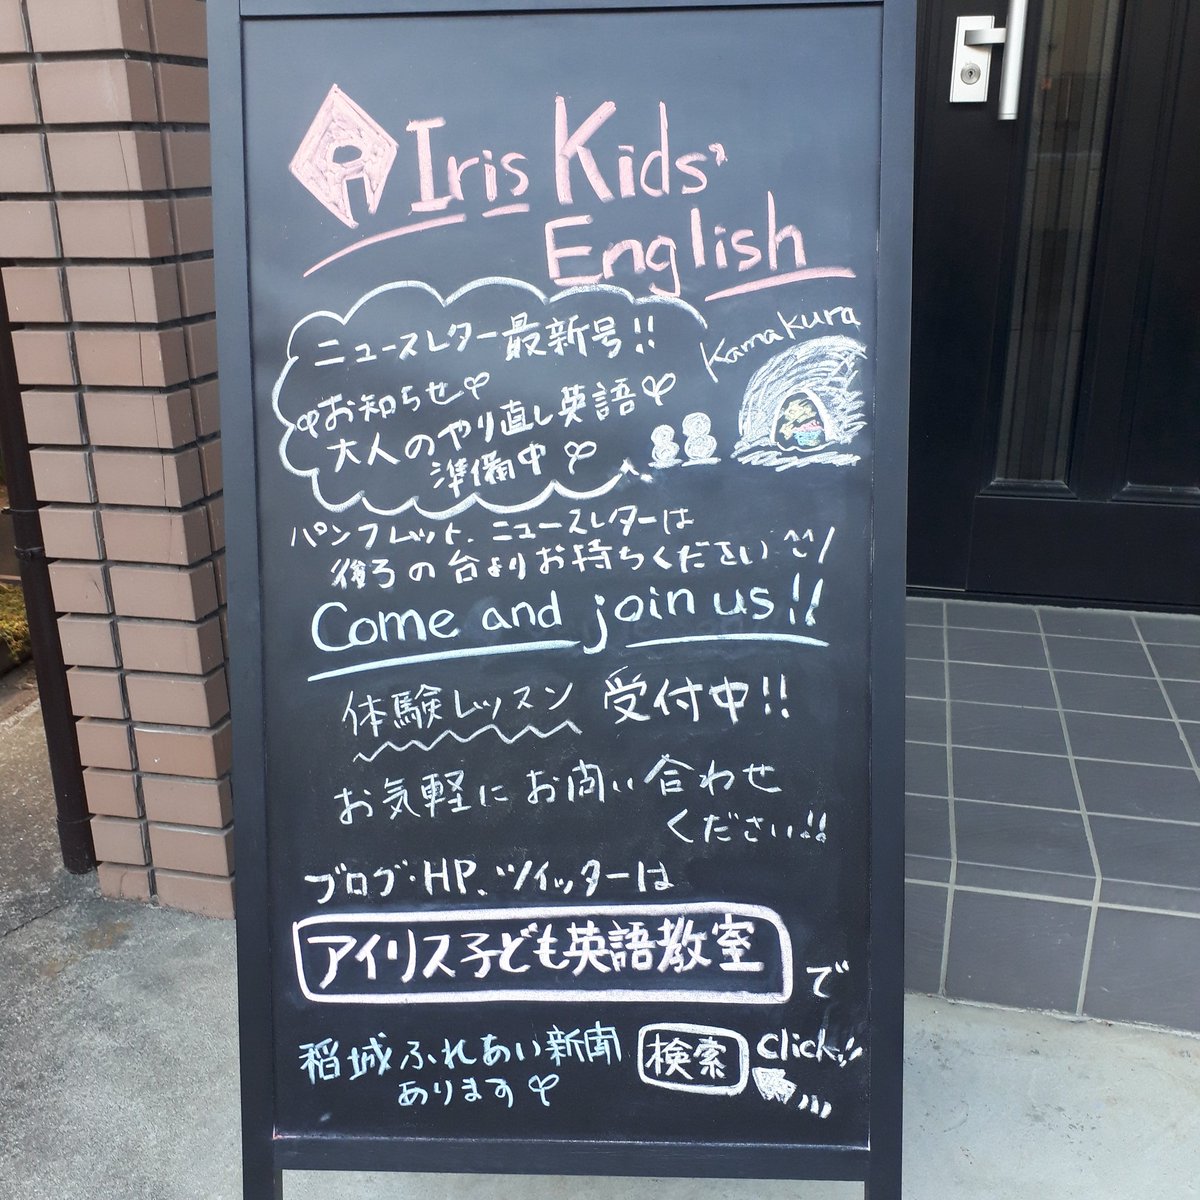 Iris Kids'
English
ニュースレター最新号!!
お知らせ
大人のやり直し英語
準備中
Kamakura
パンフレット、ニュースレターは
後ろの台よりお持ちください^^/
Come and join us!!
体験レッスン 受付中!!
お気軽にお問い合わせ
ください!!
ブログ・HP、ツイッターは
アイリス子ども英語教室 で
検索 click!!
稲城ふれあい新聞
あります